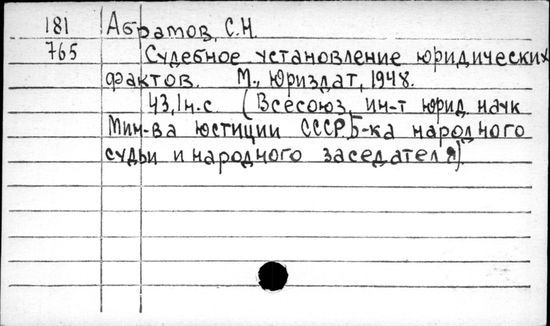 181 Абрамов, С.Н.
765 Судебное установление юридических
фактов. М., Юриздат, 1948.
43,1н.с (Всесоюз. ин-т юрид. наук
Мин-ва юстиции СССР. Б-ка народного
судьи и народного заседателя).